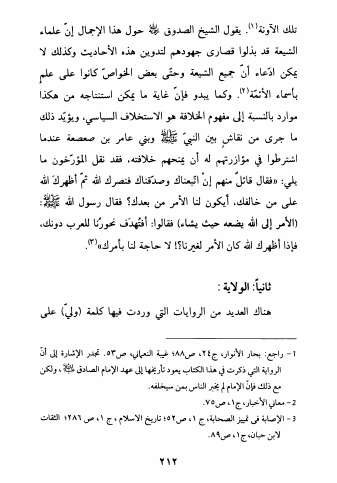 تلك الآونة(١). يقول الشيخ الصدوق ﷺ حول هذا الإجمال إنّ علماء
الشيعة قد بذلوا قصارى جهودهم لتدوين هذه الأحاديث وكذلك لا
يمكن ادّعاء أنّ جميع الشيعة وحتّى بعض الخواصّ كانوا على علمٍ
بأسماء الأئمّة(٢). وكما يبدو فإنّ غاية ما يمكن استنتاجه من هكذا
موارد بالنسبة إلى مفهوم الخلافة هو الاستخلاف السياسي، ويؤيّد ذلك
ما جرى من نقاشٍ بين النبيّ ﷺ وبني عامر بن صعصعة عندما
اشترطوا في مؤازرتهم له أن يمنحهم خلافته، فقد نقل المؤرّخون ما
يلي: «فقال قائلٌ منهم إنْ اتّبعناك وصدّقناك فنصرك الله ثمّ أظهركَ الله
على من خالفك، أيكون لنا الأمر من بعدك؟ فقال رسول الله ﷺ:
(الأمر إلى الله يضعه حيث يشاء) فقالوا: أفتُهدَف نحورُنا للعرب دونك،
فإذا أظهرك الله كان الأمر لغيرنا؟! لا حاجة لنا بأمرك»(٣).
ثانياً: الولاية :
هناك العديد من الروايات التي وردت فيها كلمة (وليّ) على
1 - راجع: بحار الأنوار، ج٢٤، ص٨٨؛ غيبة النعماني، ص٥٣. تجدر الإشارة إلى أنّ
الرواية التي ذكرت في هذا الكتاب يعود تأريخها إلى عهد الإمام الصادق ، ولكن
مع ذلك فإنّ الإمام لم يخبر الناس بمن سيخلفه.
2 - معاني الأخبار، ج١، ص٧٥.
3 - الإصابة في تمييز الصحابة، ج١، ص٥٢؛ تاريخ الاسلام، ج١، ص٢٨٦؛ الثقات
لابن حبان، ج١، ص٨٩.
٢١٢